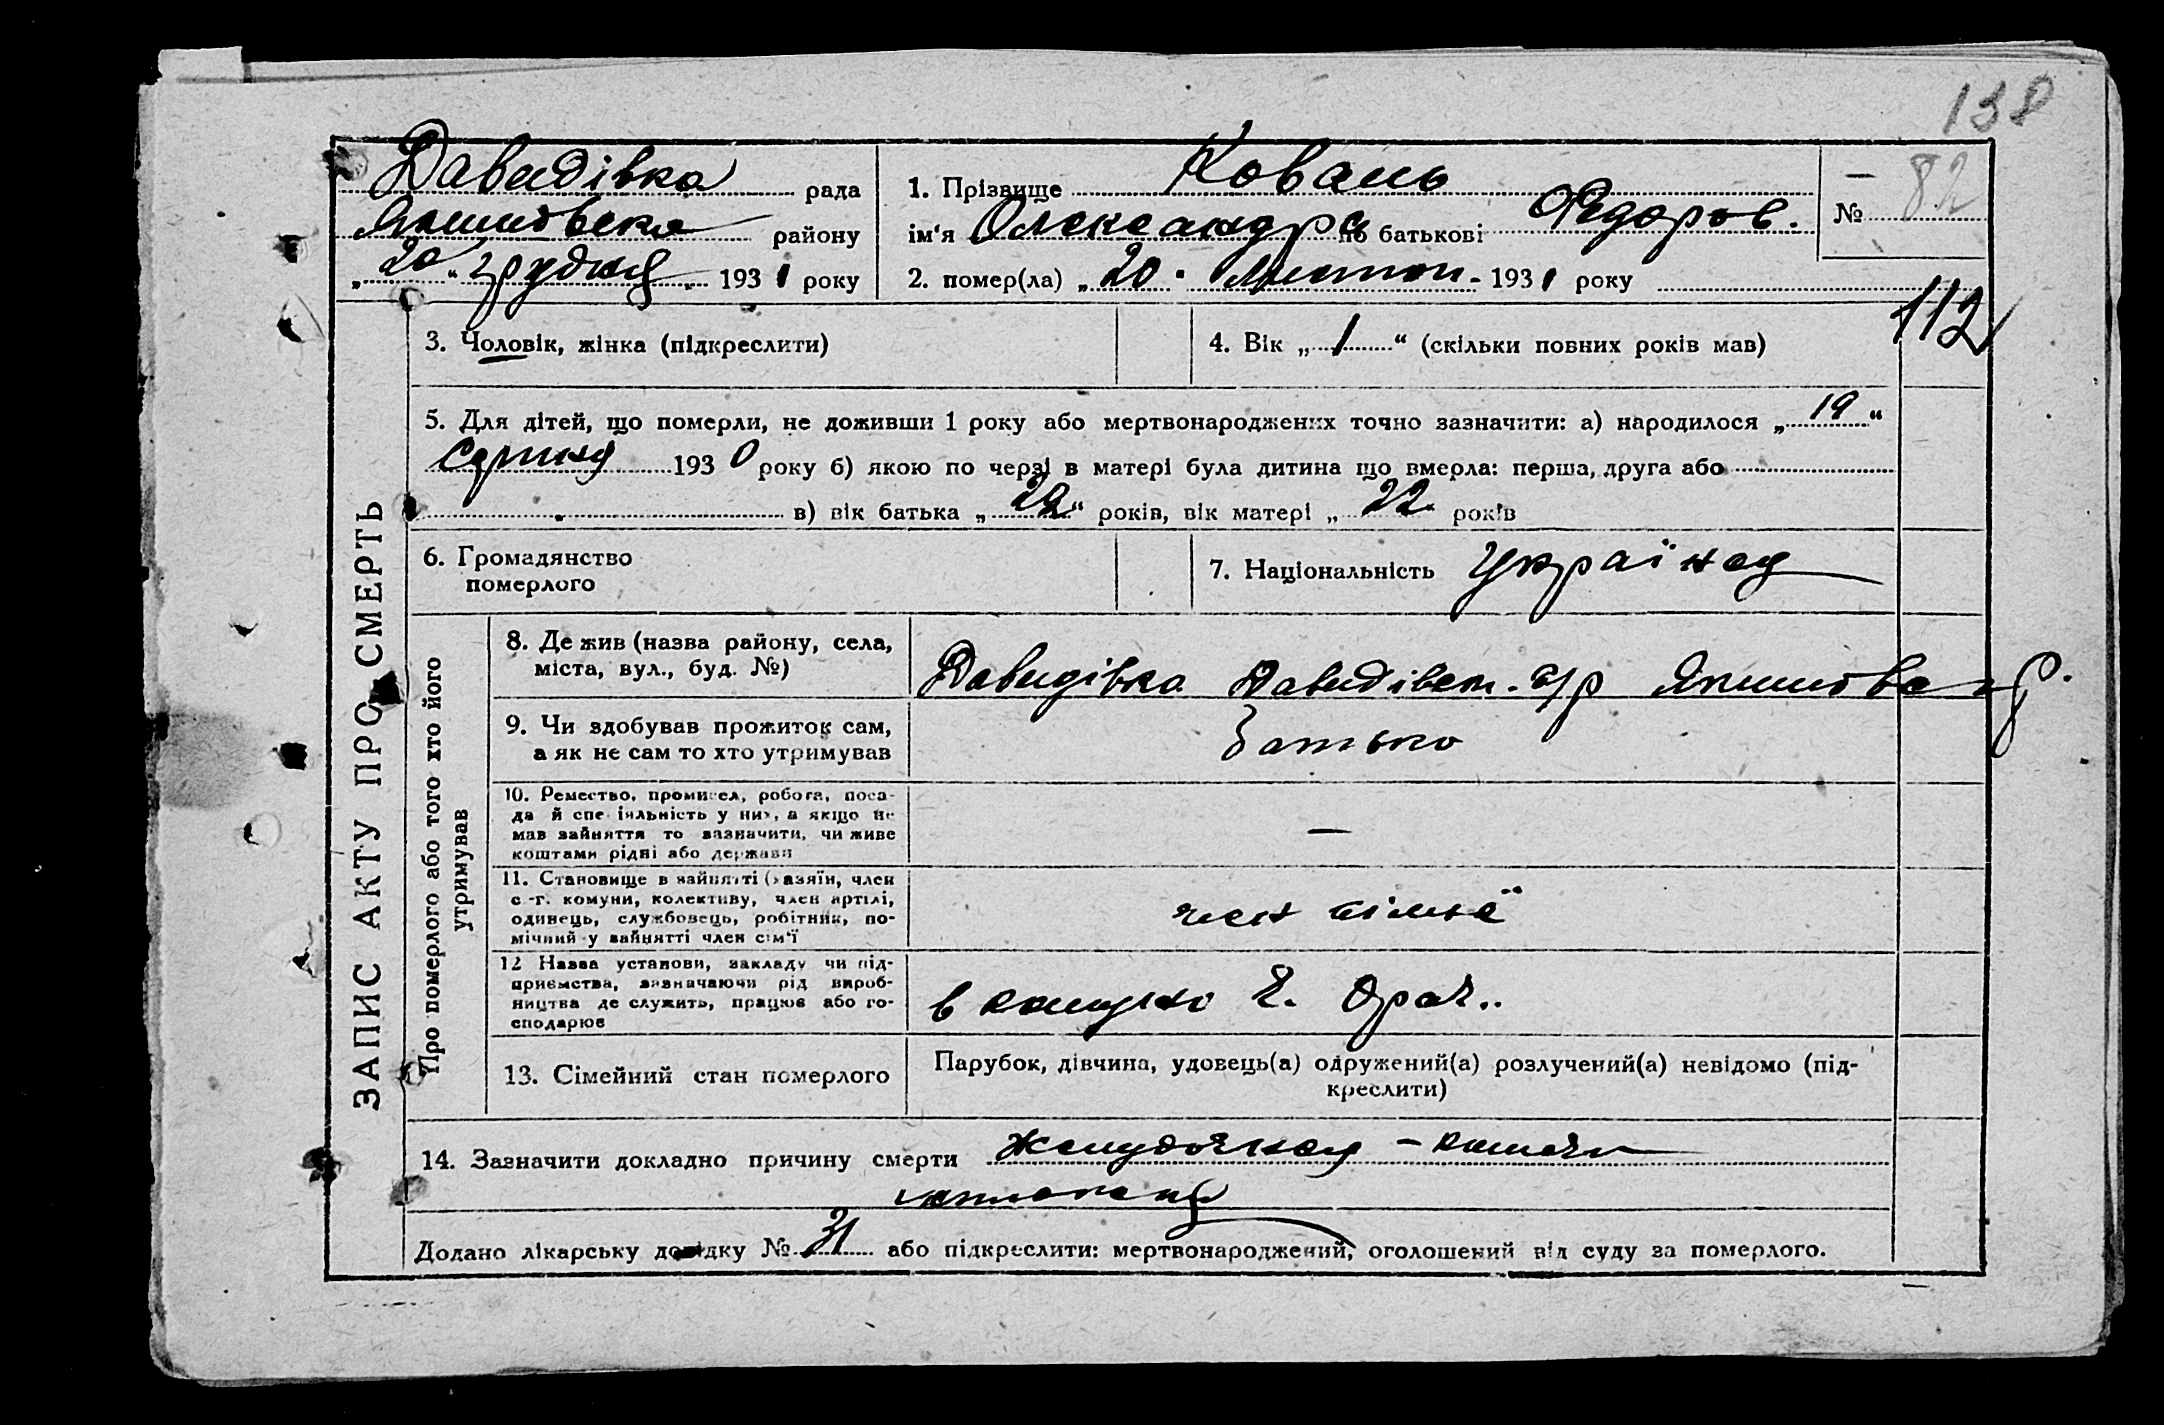 138
Давидівка рада
району
„20“ грудня 1931 року
1. Прізвище Ковань
ім'я Олександр по батькові Федоров.
2. помер(ла) „20" листоп. 1931 року
— № 82
112
3. Чоловік, жінка (підкреслити)
4. Вік „1“ (скільки повних років мав)
5. Для дітей, що померли, не доживши 1 року або мертвонароджених точно зазначити: а) народилося „19“
серпня 1930 року б) якою по черзі в матері була дитина що вмерла: перша, друга або
в) вік батька „ “ років, вік матері „22“ років
6. Громадянство
померлого
7. Національність
ЗАПИС АКТУ ПРО СМЕРТЬ
Про померлого або того хто його
утримував
8. Де жив (назва району, села,
міста, вул., буд. №)
Давидівка Давидівськ. с/р
9. Чи здобував прожиток сам,
а як не сам то хто утримував
Батько
10. Ремество, промисел, робота, поса-
да й спеціяльність у них, а якщо не
мав зайняття то зазначити, чи живе
коштами рідні або держави
—
11. Становище в зайнятті (хазяїн, член
с.-г. комуни, колективу, член артілі,
одинець, службовець, робітник, по-
мічний у зайнятті член сім'ї
член сімьї
12 Назва установи, закладу чи під-
приємства, зазначаючи рід вироб-
ництва де служить, працює або го-
сподарює
в
13. Сімейний стан померлого
Парубок, дівчина, удовець(а) одружений(а) розлучений(а) невідомо (під-
креслити)
14. Зазначити докладно причину смерти Желудочная –
Додано лікарську довідку № 31 або підкреслити: мертвонароджений, оголошений від суду за померлого.